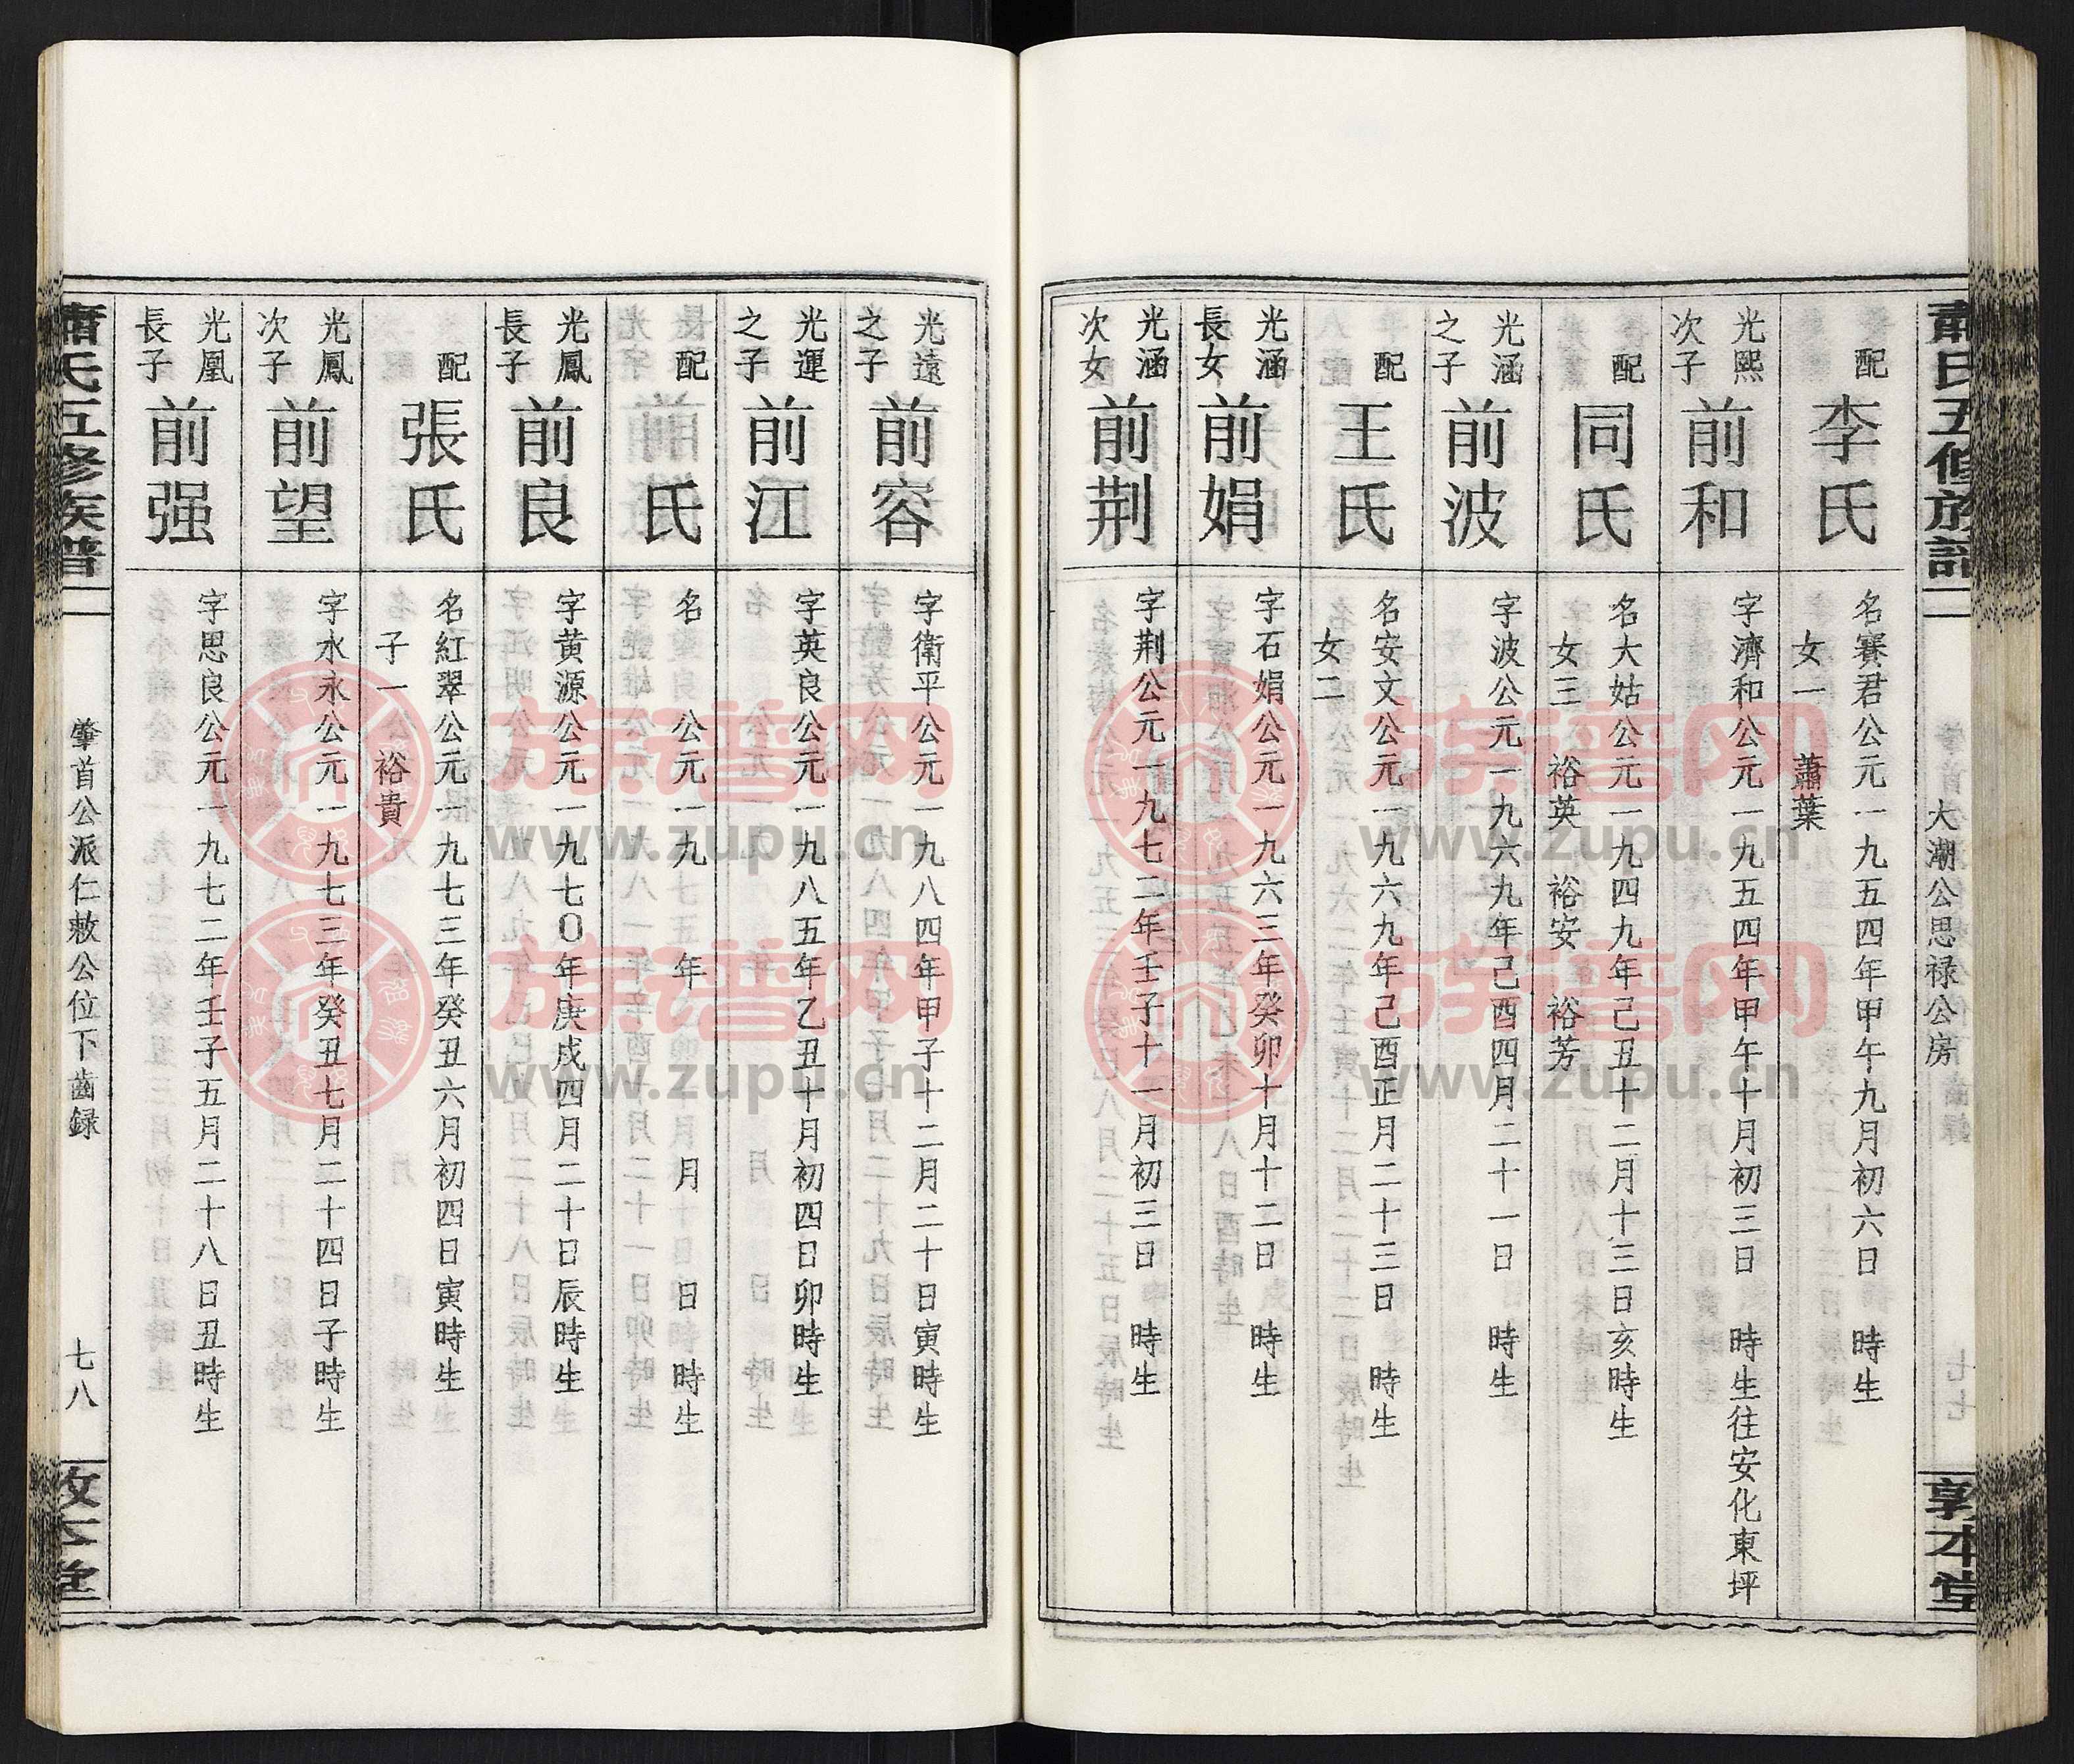 蕭氏五修族譜
大潮公思祿公房
敦本堂
配
李氏
名賽君公元一九五四年甲午九月初六日 時生
女一 蕭葉
光熙
次子
前和
字濟和公元一九五四年甲午十月初三日 時生往安化東坪
配
同氏
名大姑公元一九四九年己丑十二月十三日亥時生
女三 裕英 裕安 裕芳
光涵
之子
前波
字波公元一九六九年己酉四月二十一日 時生
配
王氏
名安文公元一九六九年己酉正月二十三日 時生
女二
光涵
長女
前娟
字石娟公元一九六三年癸卯十月十二日 時生
光涵
次女
前荆
字荆公元一九七二年壬子十一月初三日 時生
光遠
之子
前容
字衛平公元一九八四年甲子十二月二十日寅時生
光運
之子
前江
字英良公元一九八五年乙丑十月初四日卯時生
配
氏
名 公元一九 年 月 日 時生
光鳳
長子
前良
字黄源公元一九七〇年庚戌四月二十日辰時生
配
張氏
名紅翠公元一九七三年癸丑六月初四日寅時生
子一 裕貴
光鳳
次子
前望
字永永公元一九七三年癸丑七月二十四日子時生
光凰
長子
前强
字思良公元一九七二年壬子五月二十八日丑時生
蕭氏五修族譜
肇首公派仁敕公位下齒録
七八
敦本堂
族谱网
www.zupu.cn
族谱网
www.zupu.cn
族谱网
www.zupu.cn
族谱网
www.zupu.cn